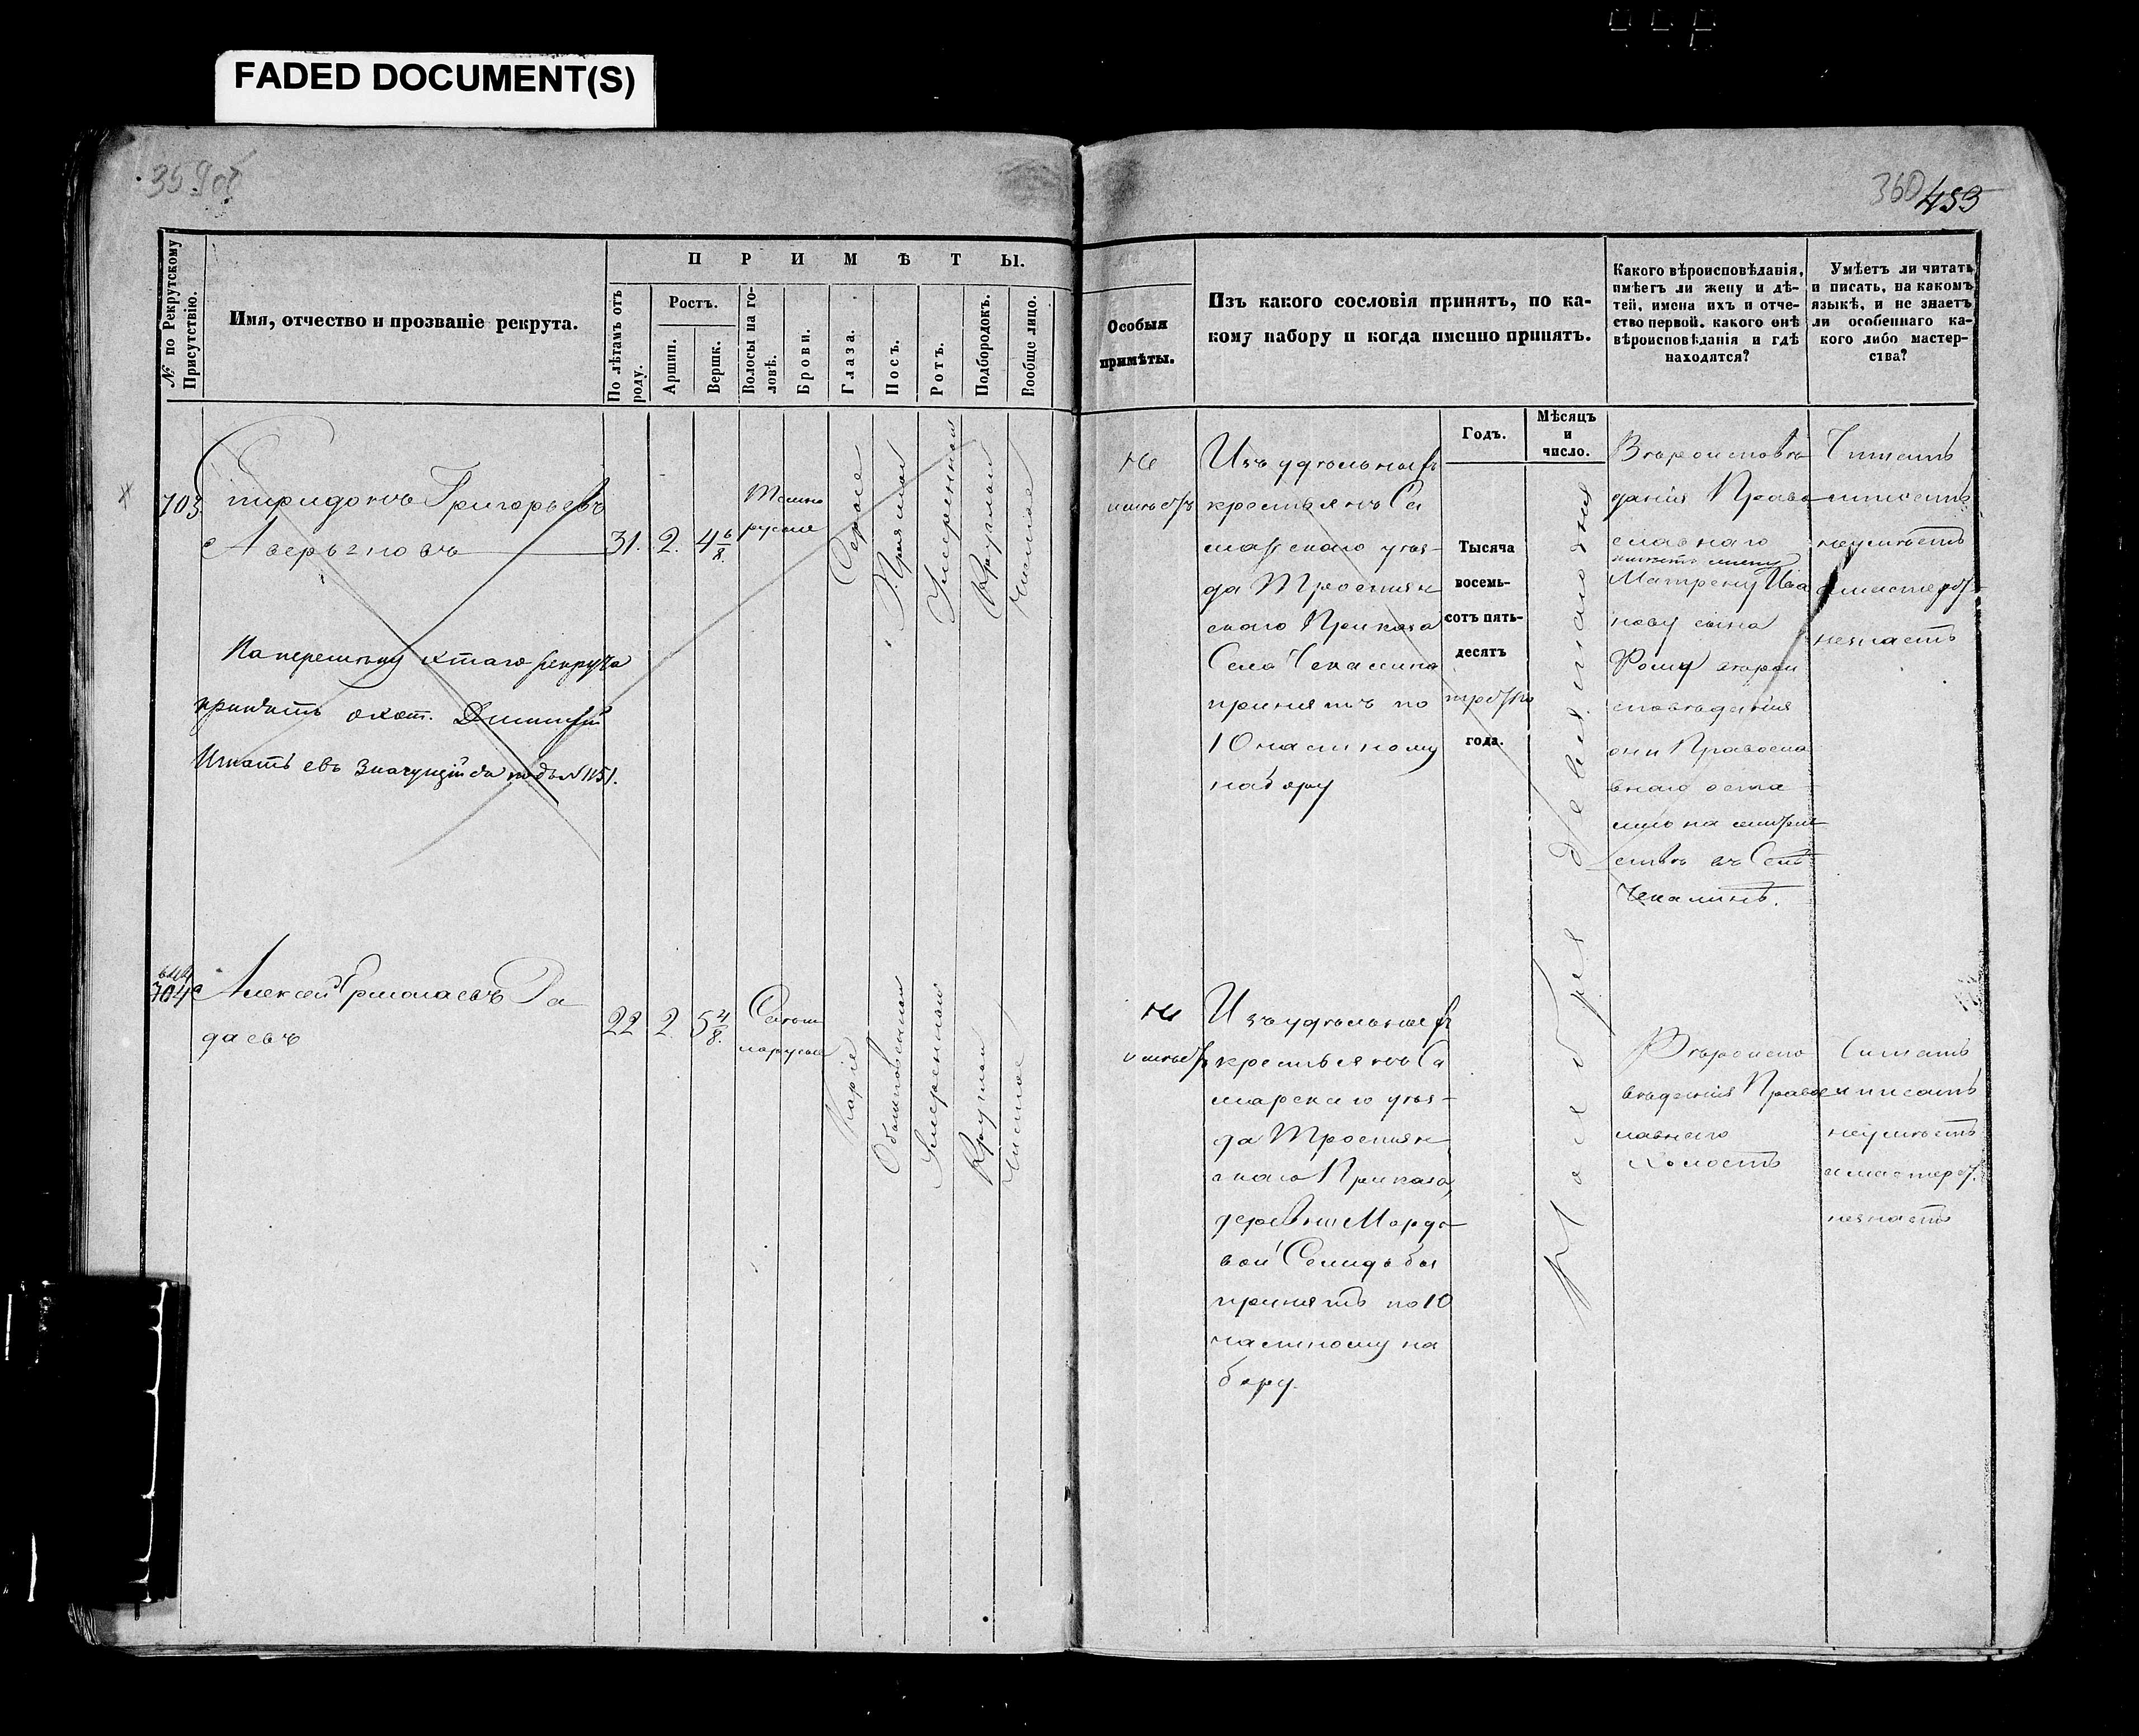 FADED DOCUMENT(S)
359 об
360 453
№ по Рекрутскому Присутствію.
Имя, отчество и прозваніе рекрута.
ПРИМѢТЫ.
По лѣтамъ отъ роду.
Ростъ.
Аршин.
Вершк.
Волосы на головѣ.
Брови.
Глаза.
Носъ.
Ротъ.
Подбородокъ.
Вообще лицо.
Особыя
примѣты.
Изъ какого сословія принятъ, по ка-
кому набору и когда именно принятъ.
Какого вѣроисповѣданія,
имѣетъ ли жену и дѣ-
тей, имена ихъ и отче-
ство первой, какого онѣ
вѣроисповѣданія и гдѣ
находятся?
Умѣетъ ли читать
и писать, на какомъ
языкѣ, и не знаетъ
ли особеннаго ка-
кого либо мастер-
ства?
Годъ.
Мѣсяцъ
и
число.
703
Спиридонъ Григорьевъ
Аверьяновъ
31. 2. 4 6/8.
Темно
русые
Серые
Прямой
Умеренный
Круглый
Чистое
На перемену этаго рекрута
принятъ охот. Дмитрий
Игнатьевъ значущийся подъ № 1151.
Не
имѣетъ
Изъ удѣльныхъ
крестьянъ Са
марскаго уѣз-
да Тростян
скаго Приказа
Села Чекалина
принятъ по
10 частному
набору
Тысяча
восемь-
сотъ пять-
десятъ
года.
Ноября девятаго дня
Вѣроисповѣ
данія Право
славнаго
имѣетъ жену
Матрену Ива
нову сына
Рому вѣрои
сповѣданія
они Правосла
внаго оста
лись на житель
ствѣ въ Селѣ
Чекалинѣ.
Читать
и писать
неумѣетъ
и мастерст.
незнаетъ
704
Алексей
Радаевъ
22 2 5 4/8.
Светло
русые
Каріе
Обыкновенный
Умеренный
Круглый
Чистое
Не
имѣетъ
Изъ удѣльныхъ
крестьянъ Са
марскаго уѣз-
да Тростян
скаго Приказа,
деревни Мордо
вой Селидьбы
принятъ по 10
частному на
бору.
Вѣроиспо
вѣданія Правос
лавнаго
холостъ
Читать
и писать
неумѣетъ
и мастерст.
незнаетъ